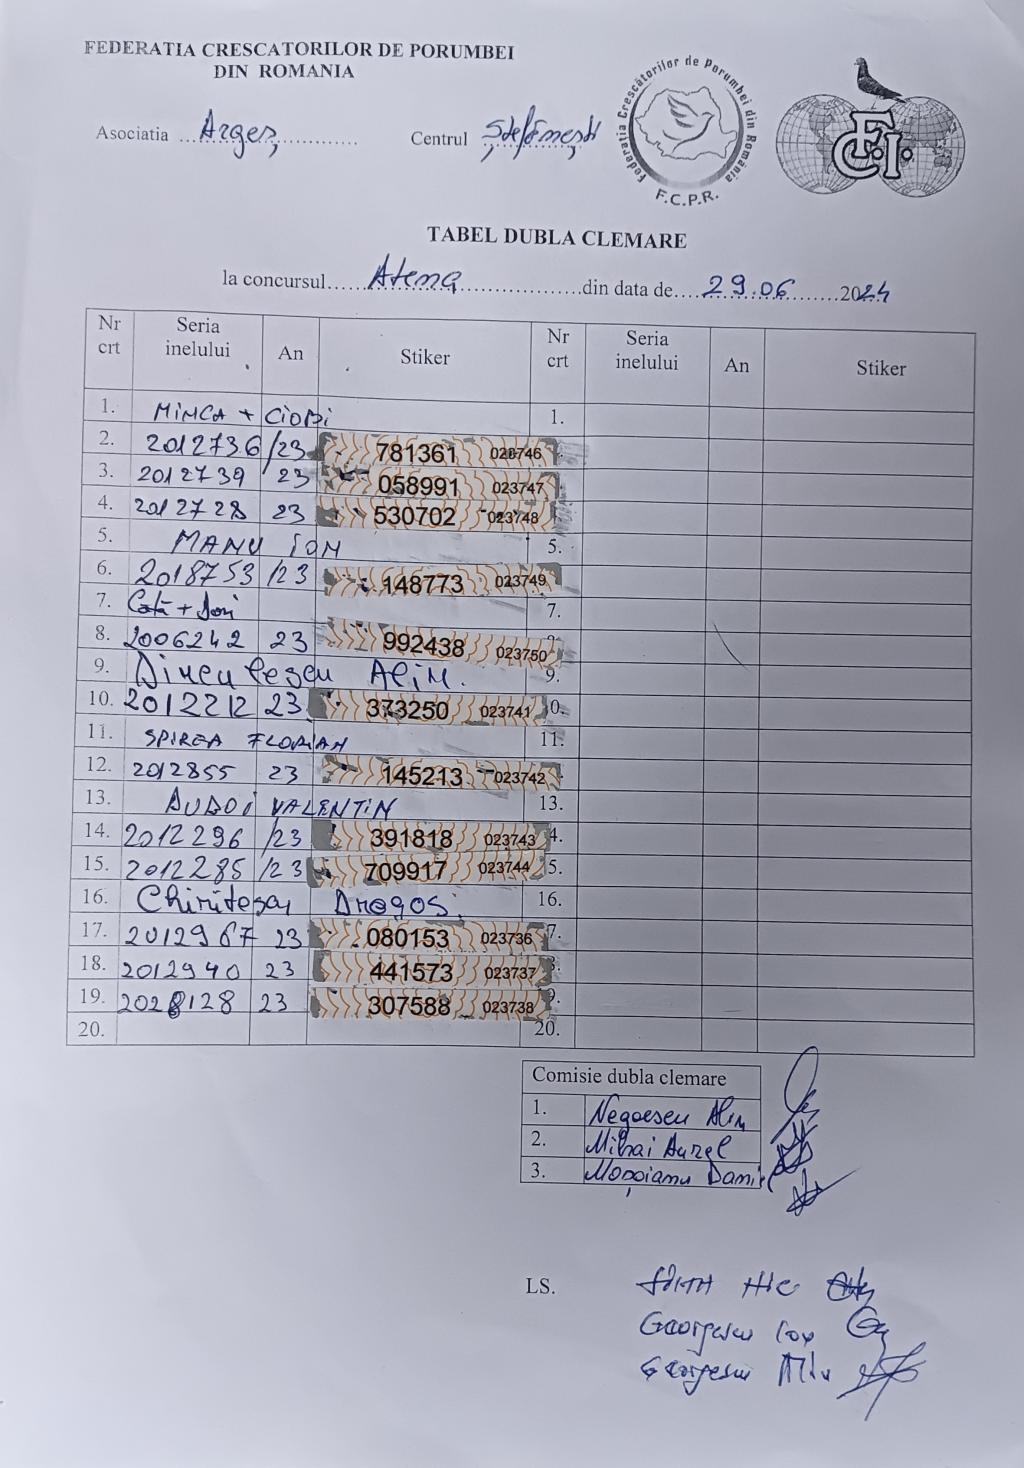 FEDERATIA CRESCATORILOR DE PORUMBEI
DIN ROMANIA
Asociatia ...Argeș............... Centrul Ștefănești
Federația Crescătorilor de Porumbei din România
F.C.P.R.
F.C.I.
TABEL DUBLA CLEMARE
la concursul......Atena......din data de....29.06........2024
Nr crt Seria inelului An Stiker Nr crt Seria inelului An Stiker
1. MINCA + CIOBI 1.
2. 2012736 /23 781361 023746
3. 2012739 23 058991 023747
4. 2012728 23 530702 023748
5. MANU ION 5.
6. 2018753 /23 148773 023749
7. 7.
8. 2006242 23 992438 023750
9. Dinculescu Alin. 9.
10. 2012212 23 373250 023741 0.
11. SPIREA FLORIAN 11.
12. 2012855 23 145213 023742
13. VALENTIN 13.
14. 2012296 /23 391818 023743 4.
15. 2012285 /23 709917 023744 5.
16. Chirițescu Dragoș 16.
17. 2012967 23 080153 023736 7.
18. 2012940 23 441573 023737
19. 2028128 23 307588 023738 9.
20. 20.
Comisie dubla clemare
1. Negoescu Alin
2. Mihai Aurel
3. Moșoianu Daniel
LS.
Georgescu Ion
Georgescu Alin